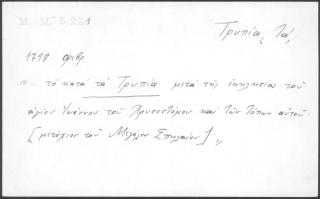 Μ. Μ. 5,221
Τρυπιά, Τά,
1798. Φεβρ.
"... τό κατά τά Τρυπιά μετά τῆς ἐκκλησίας τοῦ
ἁγίου Ἰωάννου τοῦ Χρυσοστόμου καί τῶν τόπων αὐτοῦ
[μετόχιον τοῦ Μεγάλου Σπηλαίου],,